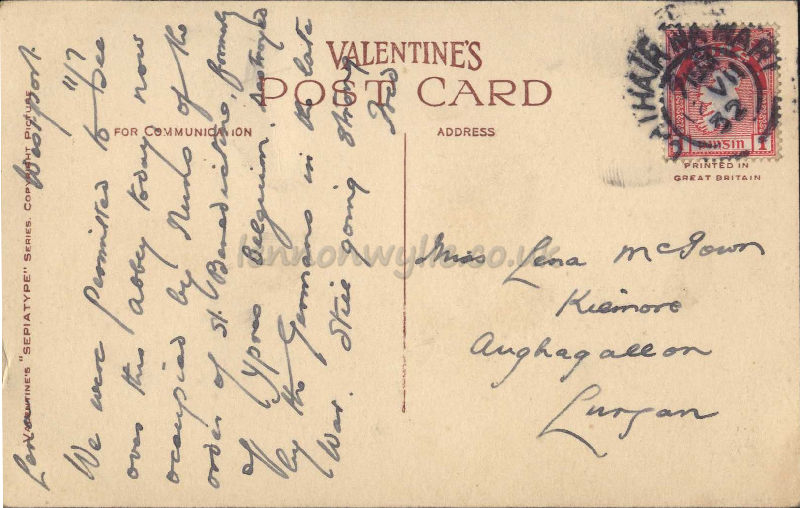 VALENTINE'S
POST CARD
FOR COMMUNICATION
ADDRESS
PRINTED IN
GREAT BRITAIN
PINSIN
1
VII
32
VALENTINE'S "SEPIATYPE" SERIES. COPYRIGHT PICTURE
Lena Westport.
11/7
We were permitted to see
over this Abbey today now
occupied by Nuns of the
order of St. Benedictine, formerly
of Ypres Belgium, destroyed
by the Germans in the late
War. Still going strong
Fred
Miss Lena McGown
Kilmore
Aughagallon
Lurgan
lennonwylie.co.uk